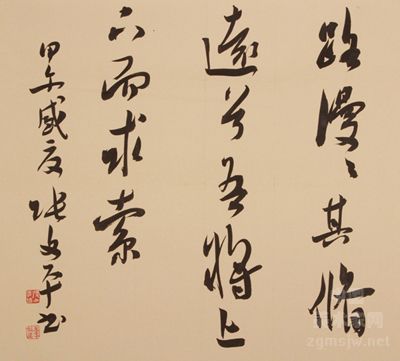 路漫〻其脩
遠兮吾將上
下而求索
甲午盛夏 张文平书
zgmsjw.net